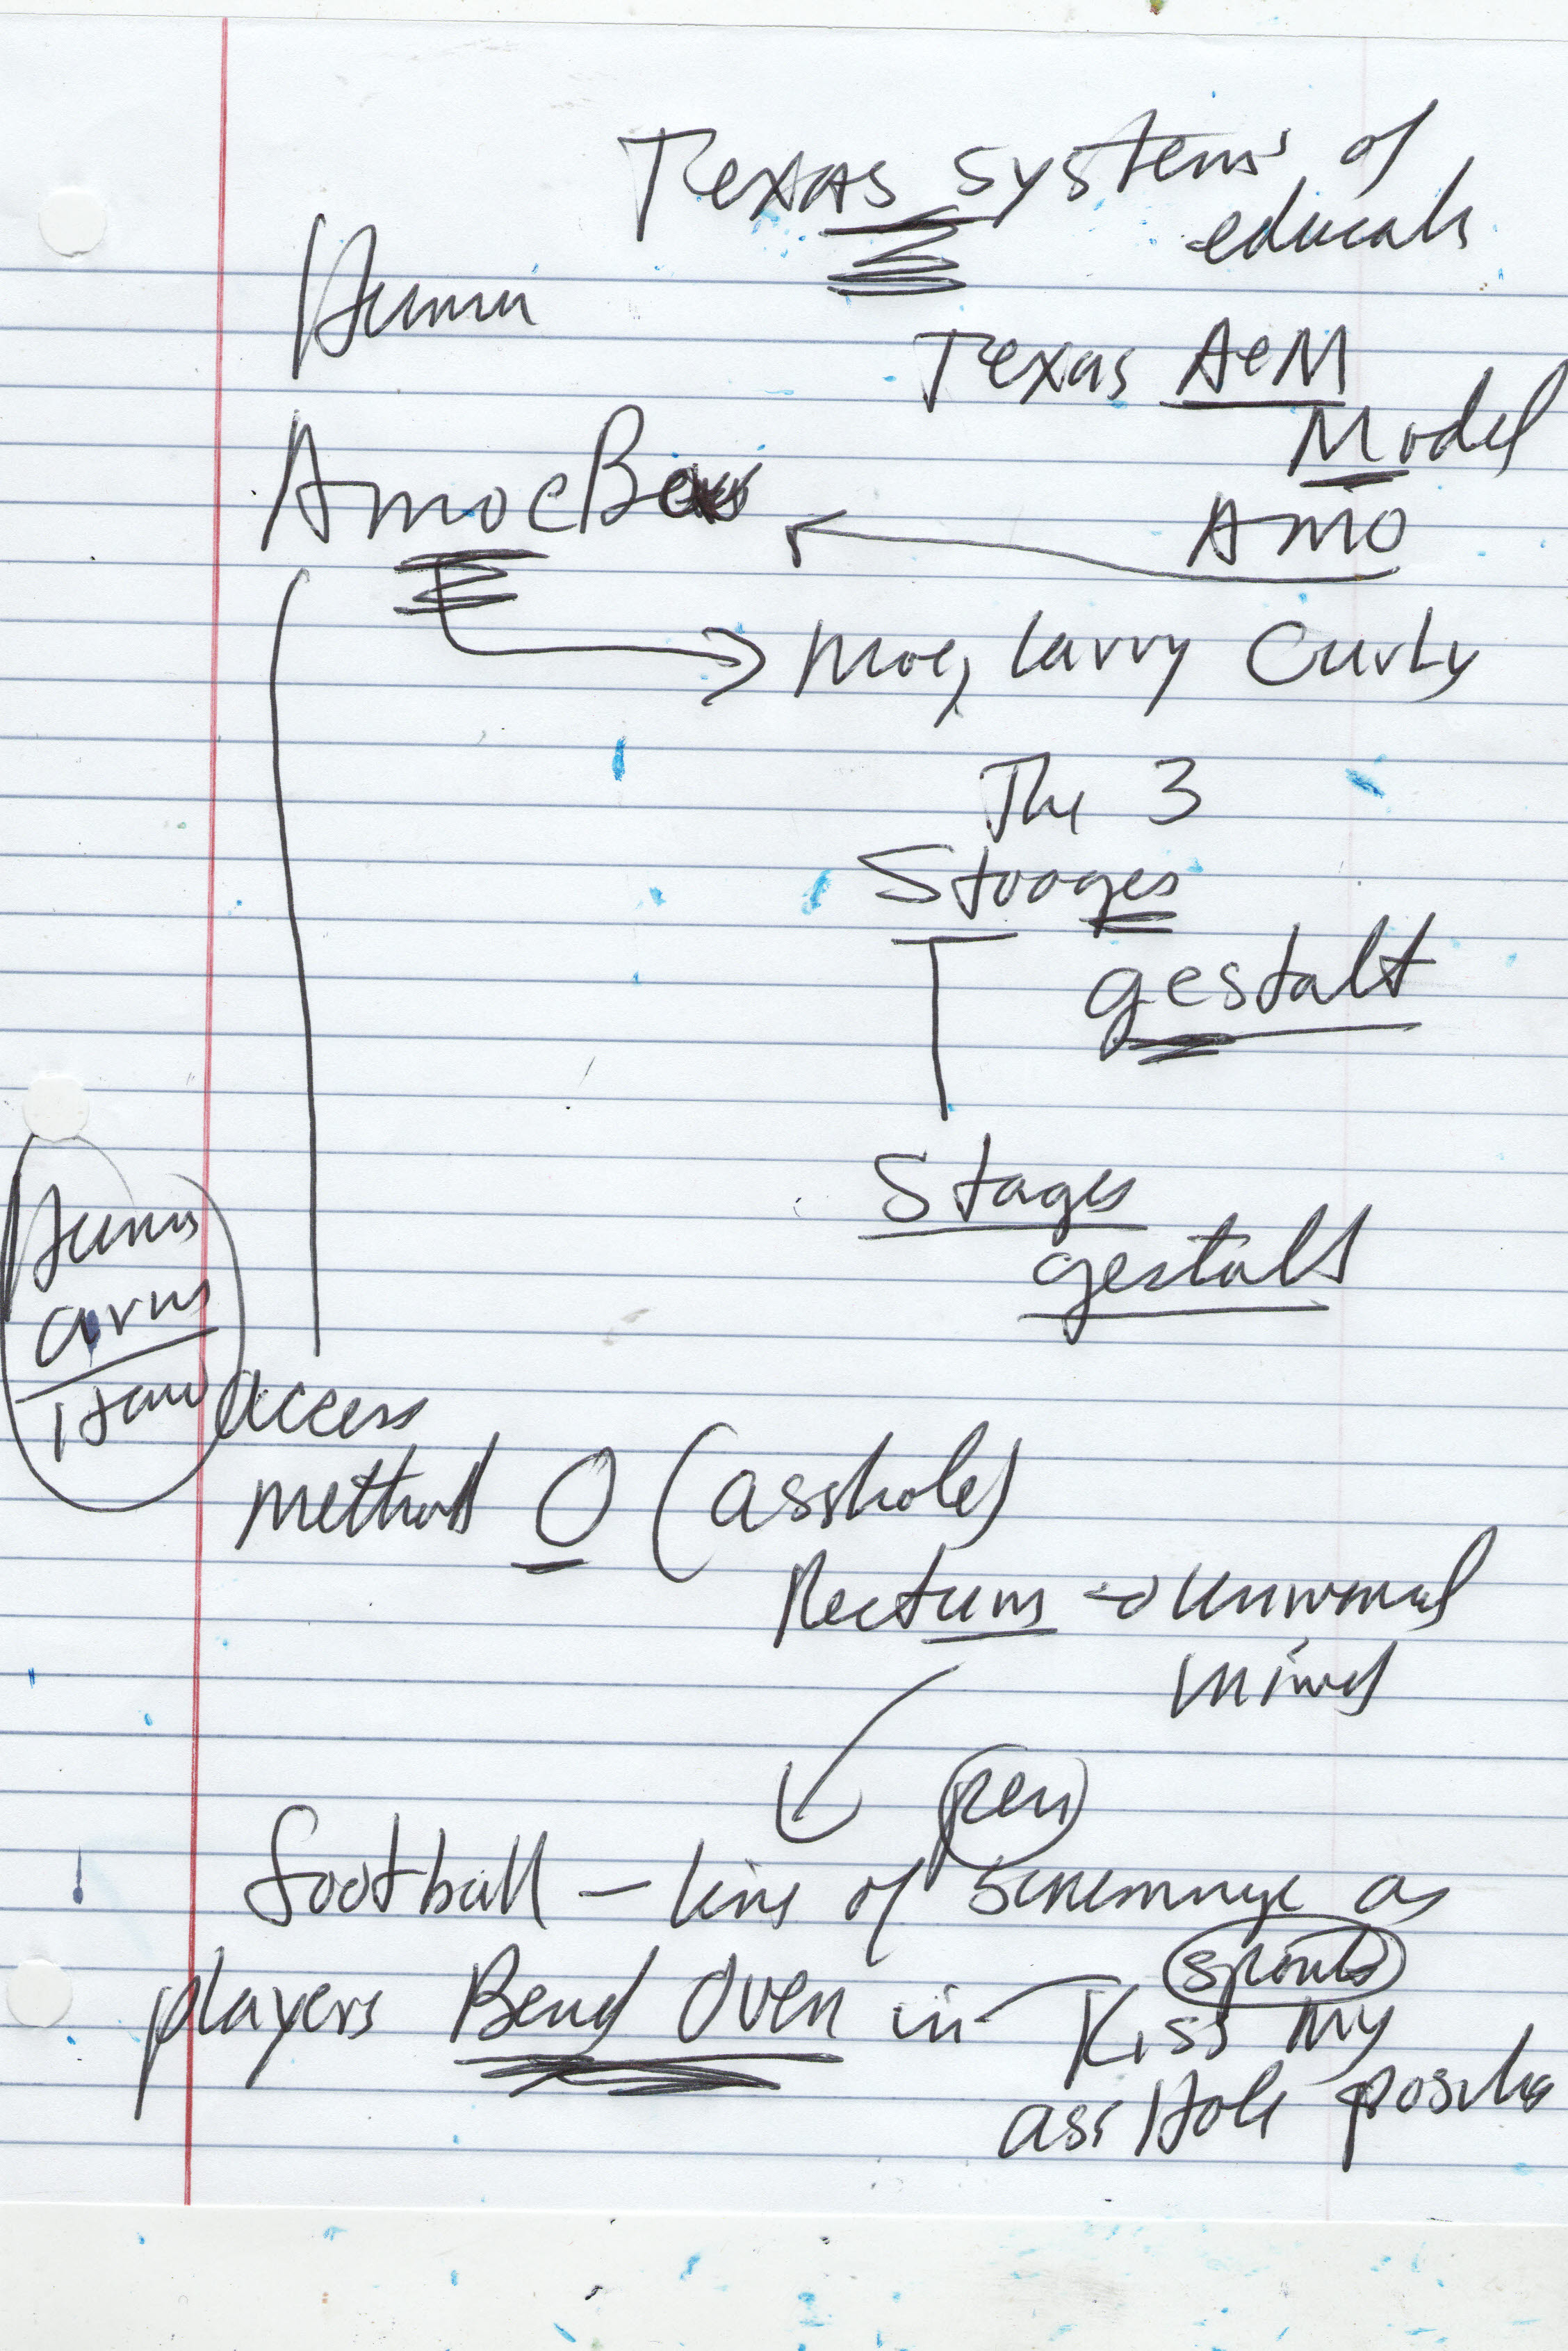 Texas systems of
educah
Human
Texas A&M
Model
AmoeBas
Amo
Moe, Larry Curly
The 3
Stooges
gestalt
Stages
gestalt
Access
method O (asshole)
Rectum → Universal
Mind
pen
football - line of scrimmage as
players Bend Over in Kiss My
ass Hole